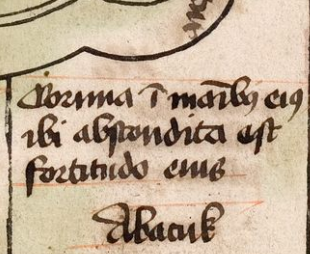 Cornua ī maībꝫ eiꝰ
ibi abscondita est
fortitudo eius
Abacuk